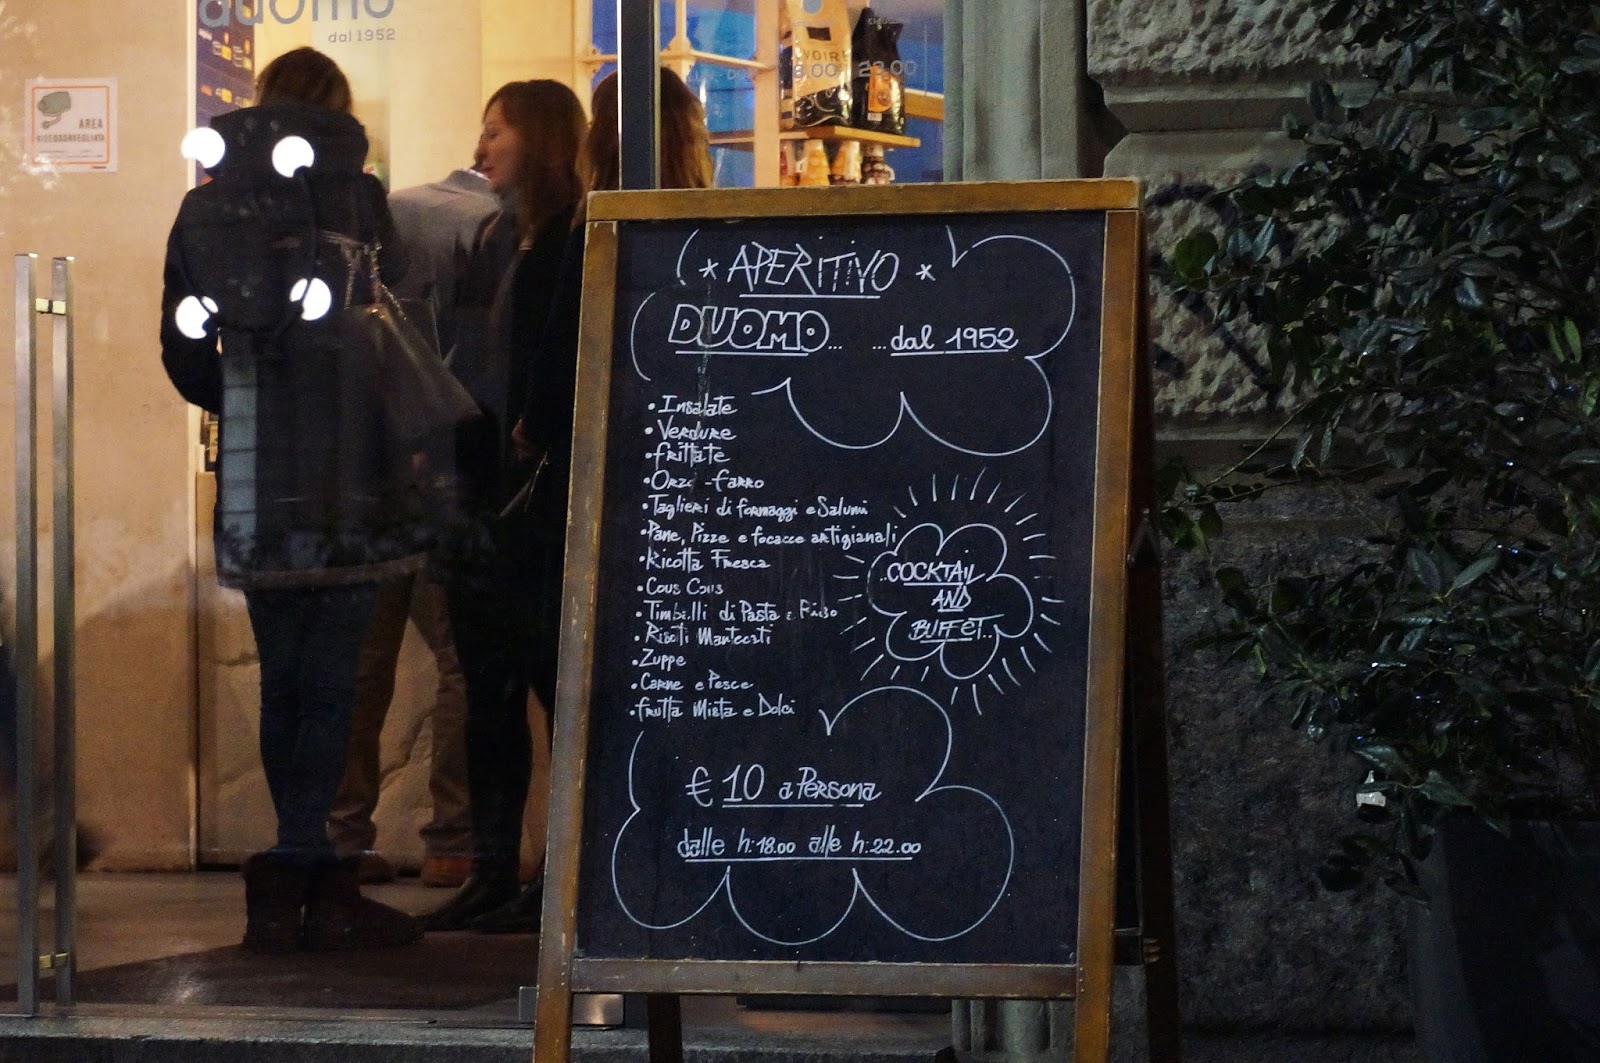 duomo
dal 1952
AREA
VIDEOSORVEGLIATA
* APERITIVO *
DUOMO... ...dal 1952
• Insalate
• Verdure
• frittate
• Orzo - farro
• Taglieri di formaggi e Salumi
• Pane, Pizze e focacce artigianali
• Ricotta Fresca
• Cous Cous
• Timballi di Pasta e Riso
• Risoti Mantecati
• Zuppe
• Carne e Pesce
• frutta Mista e Dolci
..COCKTAIL
AND
BUFFET..
€ 10 a Persona
dalle h:18.00 alle h:22.00